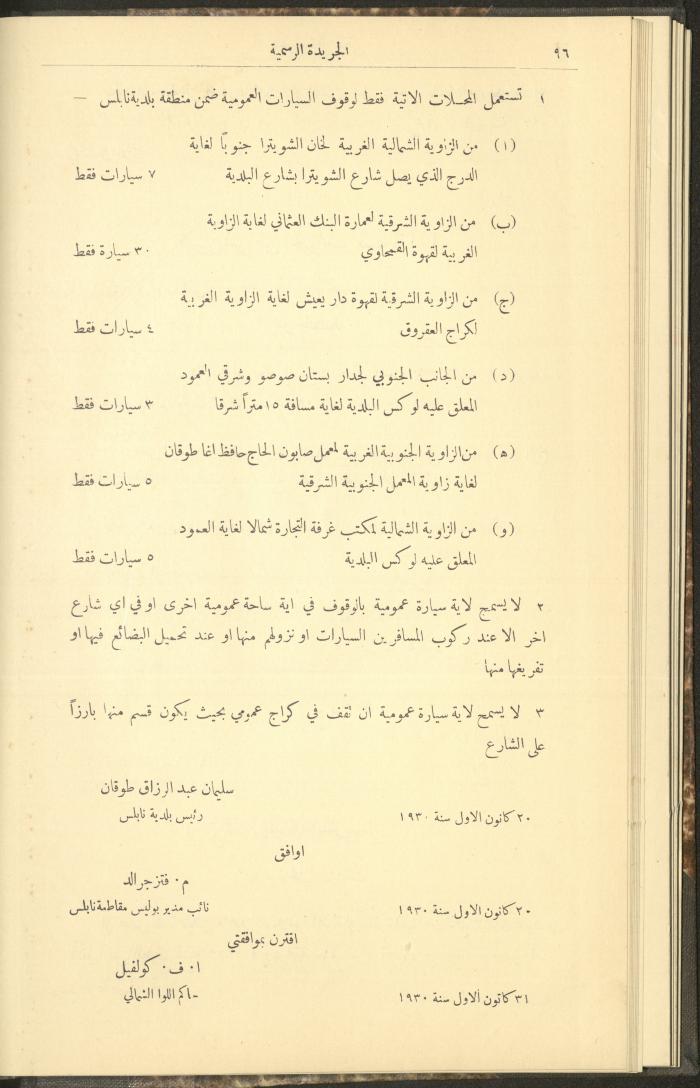 ٩٦
الجريدة الرسمية
١ تستعمل المحلات الاتية فقط لوقوف السيارات العمومية ضمن منطقة بلدية نابلس —
(ا) من الزاوية الشمالية الغربية لخان الشويترا جنوبًا لغاية
الدرج الذي يصل شارع الشويترا بشارع البلدية ٧ سيارات فقط
(ب) من الزاوية الشرقية لعمارة البنك العثماني لغاية الزاوية
الغربية لقهوة القمحاوي ٣٠ سيارة فقط
(ج) من الزاوية الشرقية لقهوة دار يعيش لغاية الزاوية الغربية
لكراج العقروق ٤ سيارات فقط
(د) من الجانب الجنوبي لجدار بستان صوصو وشرقي العمود
المعلق عليه لوكس البلدية لغاية مسافة ١٥ متراً شرقا ٣ سيارات فقط
(ه) من الزاوية الجنوبية الغربية لمعمل صابون الحاج حافظ اغا طوقان
لغاية زاوية المعمل الجنوبية الشرقية ٥ سيارات فقط
(و) من الزاوية الشمالية لمكتب غرفة التجارة شمالا لغاية العمود
المعلق عليه لوكس البلدية ٥ سيارات فقط
٢ لا يسمح لاية سيارة عمومية بالوقوف في اية ساحة عمومية اخرى او في اي شارع
اخر الا عند ركوب المسافرين السيارات او نزولهم منها او عند تحميل البضائع فيها او
تفريغها منها
٣ لا يسمح لاية سيارة عمومية ان تقف في كراج عمومي بحيث يكون قسم منها بارزاً
على الشارع
سليمان عبد الرزاق طوقان
٢٠ كانون الاول سنة ١٩٣٠ رئيس بلدية نابلس
اوافق
م. فتزجرالد
٢٠ كانون الاول سنة ١٩٣٠ نائب مدير بوليس مقاطعة نابلس
اقترن بموافقتي
ا. ف. كولفيل
٣١ كانون الاول سنة ١٩٣٠ حاكم اللوا الشمالي